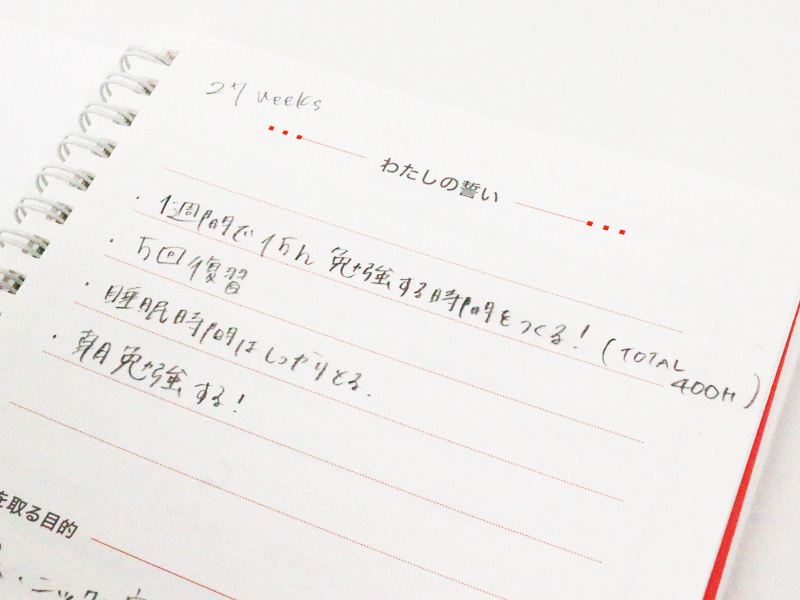 27 weeks
わたしの誓い
・1週間で15h 勉強する時間をつくる！(TOTAL
400H)
・5回復習
・睡眠時間はしっかりとる.
・朝勉強する！
を取る目的
・ニック